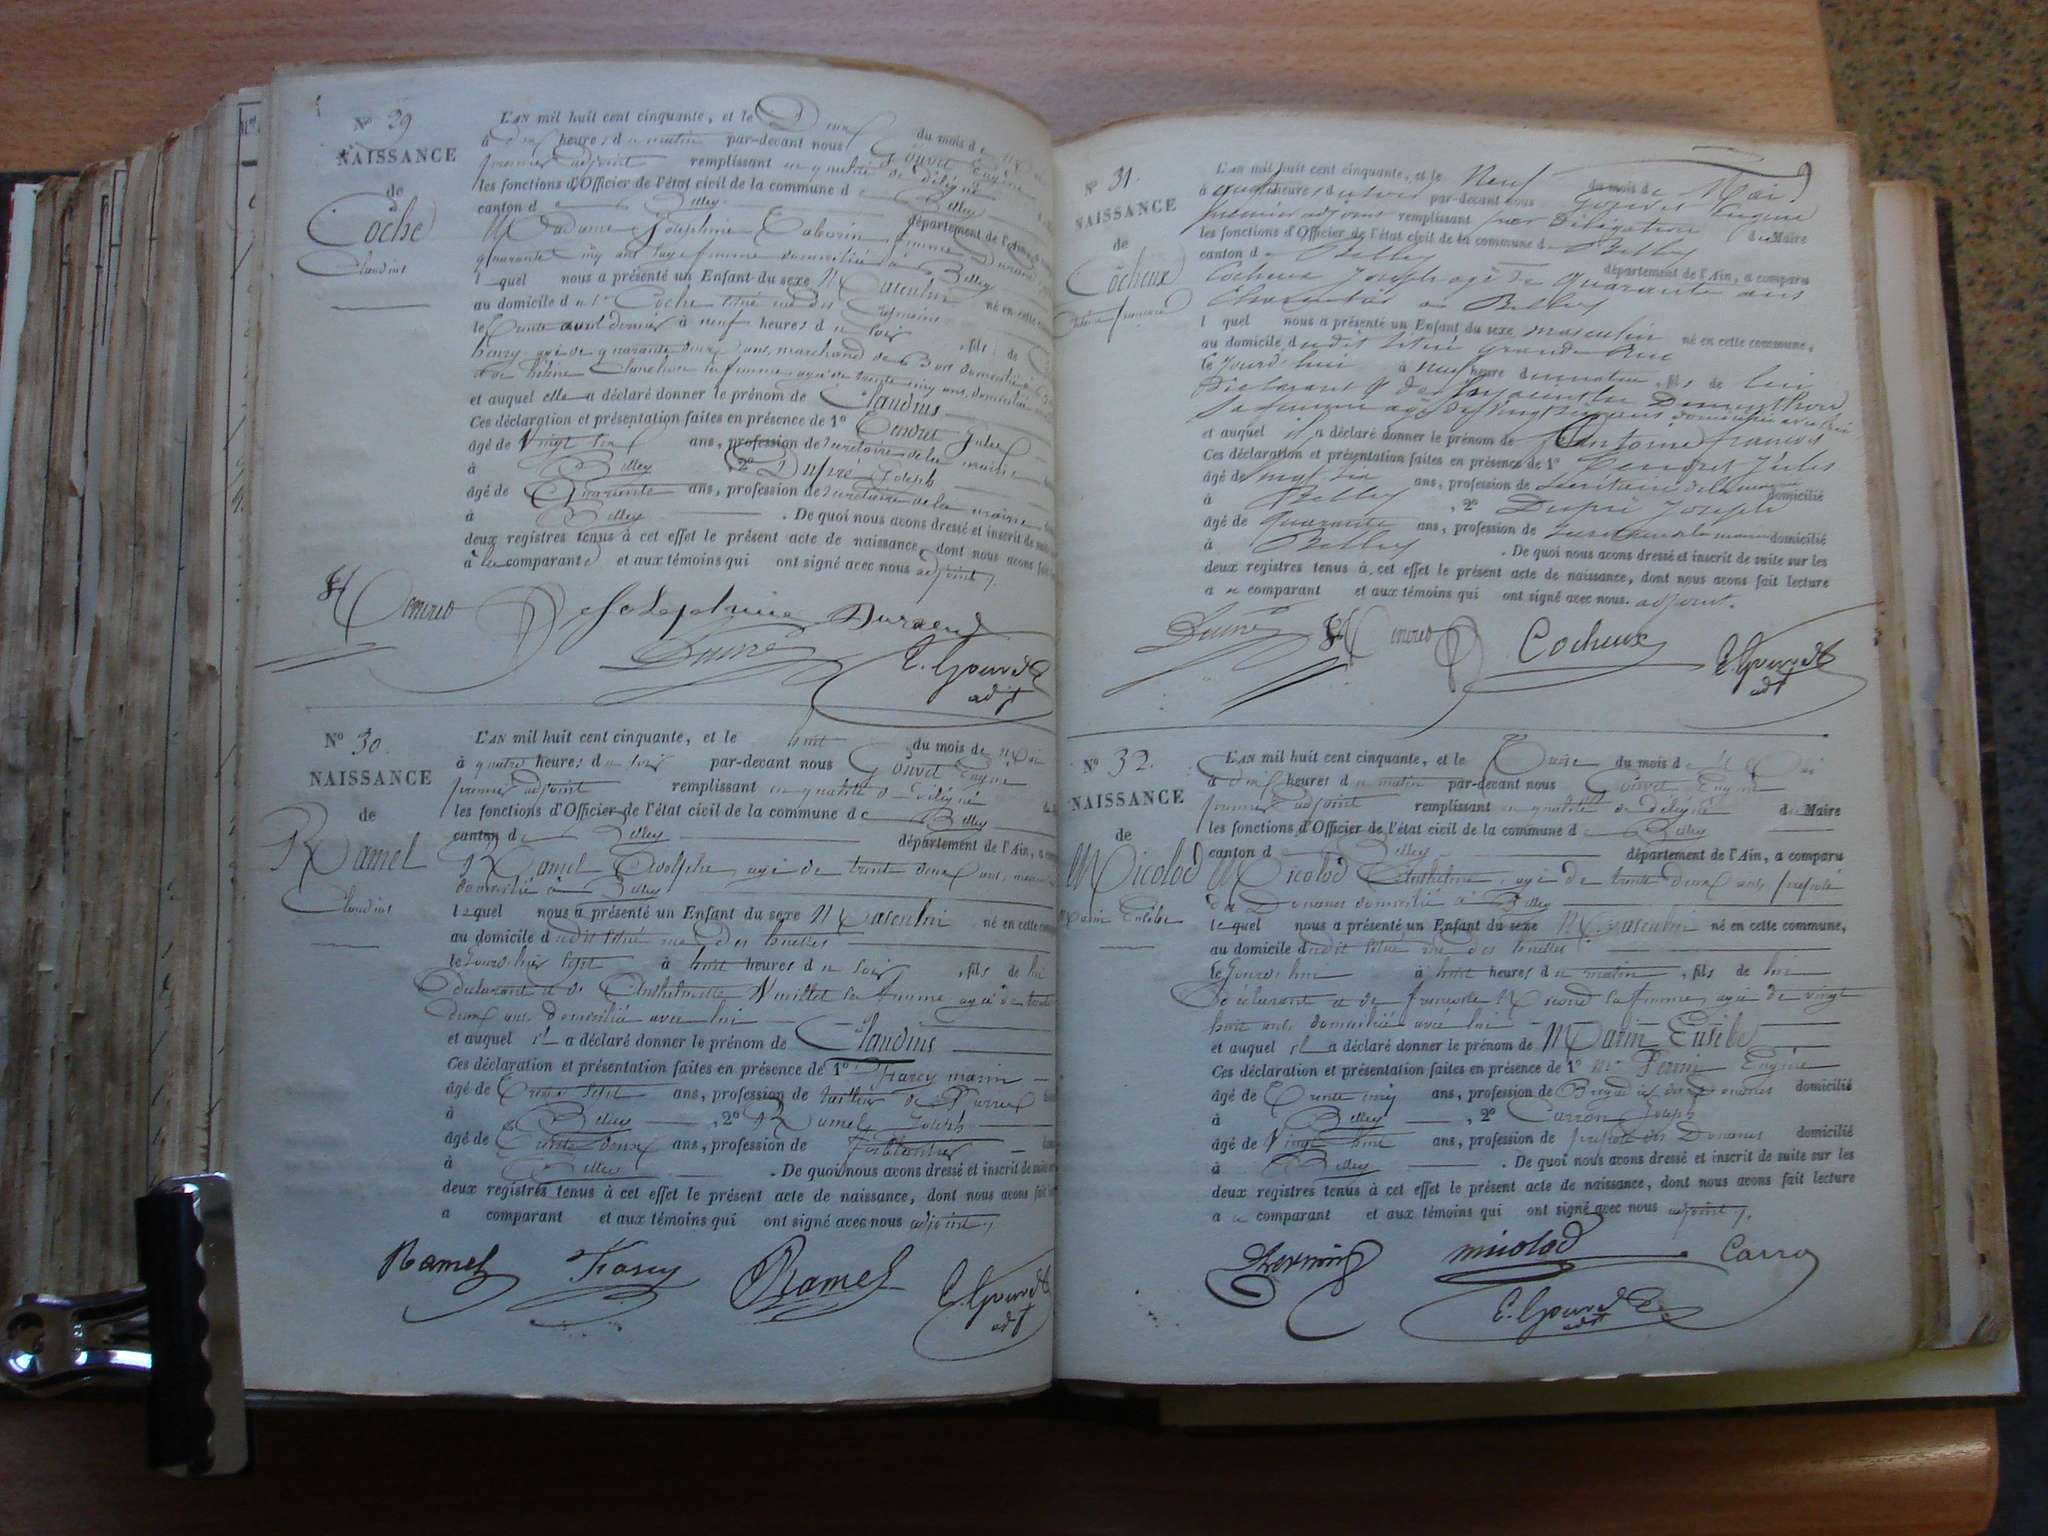 N° 29
NAISSANCE
de
Coche
Claudius
L'AN mil huit cent cinquante, et le Deux du mois de
à dix heures du matin par-devant nous Gouvet Eugène
premier adjoint remplissant en qualité de délégué
les fonctions d'Officier de l'état civil de la commune de Belley
canton de Belley département de l'Ain
Madame Joséphine femme Durand
quarante cinq ans sage femme domiciliée à Belley
l quel nous a présenté un Enfant du sexe Masculin né en cette
au domicile du Sr Coche situé rue des
le trente avril dernier à neuf heures du soir , fils de
henry agé de quarante deux ans, marchand de domicilié à
et de hélène sa femme agée de trente cinq ans, domiciliée
et auquel elle a déclaré donner le prénom de Claudius
Ces déclaration et présentation faites en présence de 1° Jules
âgé de Vingt six ans, profession de secrétaire de la mairie
à Belley , 2° Dupré Joseph
âgé de Quarante ans, profession de secrétaire de la mairie
à Belley . De quoi nous avons dressé et inscrit de suite
deux registres tenus à cet effet le présent acte de naissance, dont nous avons fait
à la comparante et aux témoins qui ont signé avec nous adjoint.
Joséphine Durand
Dupré
E. Gouvet
adjt
N° 30.
NAISSANCE
de
Ramel
Claudius
L'AN mil huit cent cinquante, et le huit du mois de Mai
à quatre heures du soir par-devant nous Gouvet Eugène
premier adjoint remplissant en qualité de délégué
les fonctions d'Officier de l'état civil de la commune de Belley
canton de Belley département de l'Ain, a
Ramel Adolphe, agé de trente deux ans,
domicilié à Belley
lequel nous a présenté un Enfant du sexe Masculin né en cette
au domicile dudit situé rue des
le jour d'hier sept à huit heures du soir , fils de lui
déclarant et de Anthelmette Vuillet sa femme agée de trente
deux ans, domiciliée avec lui
et auquel il a déclaré donner le prénom de Claudius
Ces déclaration et présentation faites en présence de 1° marin
âgé de trente sept ans, profession de tailleur de Pierres
à Belley , 2° Ramel Joseph
âgé de trente deux ans, profession de ferblantier
à Belley . De quoi nous avons dressé et inscrit de suite
deux registres tenus à cet effet le présent acte de naissance, dont nous avons fait
a comparant et aux témoins qui ont signé avec nous adjoint.
Ramel Ramel E. Gouvet
adjt
N° 31.
NAISSANCE
de
Cocheux
Antoine françois
L'AN mil huit cent cinquante, et le Neuf du mois de Mai
à quatre heures du soir par-devant nous Gouvet Eugène
premier adjoint remplissant par Délégation du Maire
les fonctions d'Officier de l'état civil de la commune de Belley
canton de Belley département de l'Ain, a comparu
Cocheux Joseph agé de quarante ans
à Belley
l quel nous a présenté un Enfant du sexe masculin né en cette commune,
au domicile dudit situé Grande Rue
le jourd'hui à neuf heures du matin , fils de lui
Déclarant et de
sa femme domiciliée avec lui
et auquel il a déclaré donner le prénom de Antoine françois
Ces déclaration et présentation faites en présence de 1° Jules
âgé de vingt six ans, profession de secrétaire de la mairie domicilié
à Belley , 2° Dupré Joseph
âgé de quarante ans, profession de secrétaire de la mairie domicilié
à Belley . De quoi nous avons dressé et inscrit de suite sur les
deux registres tenus à cet effet le présent acte de naissance, dont nous avons fait lecture
a u comparant et aux témoins qui ont signé avec nous. adjoint.
Dupré Cocheux E. Gouvet
adjt
N° 32.
NAISSANCE
de
Micolod
Marin Eusèbe
L'AN mil huit cent cinquante, et le Onze du mois de Mai
à dix heures du matin par-devant nous Gouvet Eugène
premier adjoint remplissant en qualité de délégué du Maire
les fonctions d'Officier de l'état civil de la commune de Belley
canton d Belley département de l'Ain, a comparu
Micolod Anthelme, agé de trente deux ans, préposé
des Douanes domicilié à Belley
lequel nous a présenté un Enfant du sexe Masculin né en cette commune,
au domicile dudit situé rue des
le jourd'hui à huit heures du matin , fils de lui
déclarant et de françoise sa femme, agée de vingt
huit ans, domiciliée avec lui
et auquel il a déclaré donner le prénom de Marin Eusèbe
Ces déclaration et présentation faites en présence de 1° Mr Perrin Eugène
âgé de trente cinq ans, profession de Brigadier des Douanes domicilié
à Belley , 2° Carron Joseph
âgé de Vingt ans, profession de préposé des Douanes domicilié
à Belley . De quoi nous avons dressé et inscrit de suite sur les
deux registres tenus à cet effet le présent acte de naissance, dont nous avons fait lecture
a u comparant et aux témoins qui ont signé avec nous adjoint.
micolod Carro
E. Gouvet
adjt